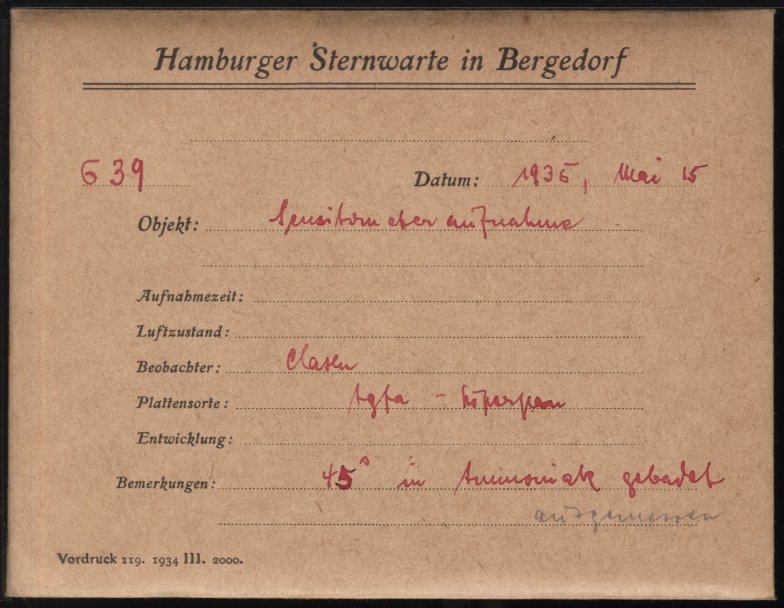 Hamburger Sternwarte in Bergedorf
G 39 Datum: 1935, Mai 15
Objekt: Sensitometeraufnahme
Aufnahmezeit:
Luftzustand:
Beobachter: Clasen
Plattensorte: Agfa -
Entwicklung:
Bemerkungen: 45ˢ in Ammoniak gebadet
ausgemessen
Vordruck 119. 1934 III. 2000.